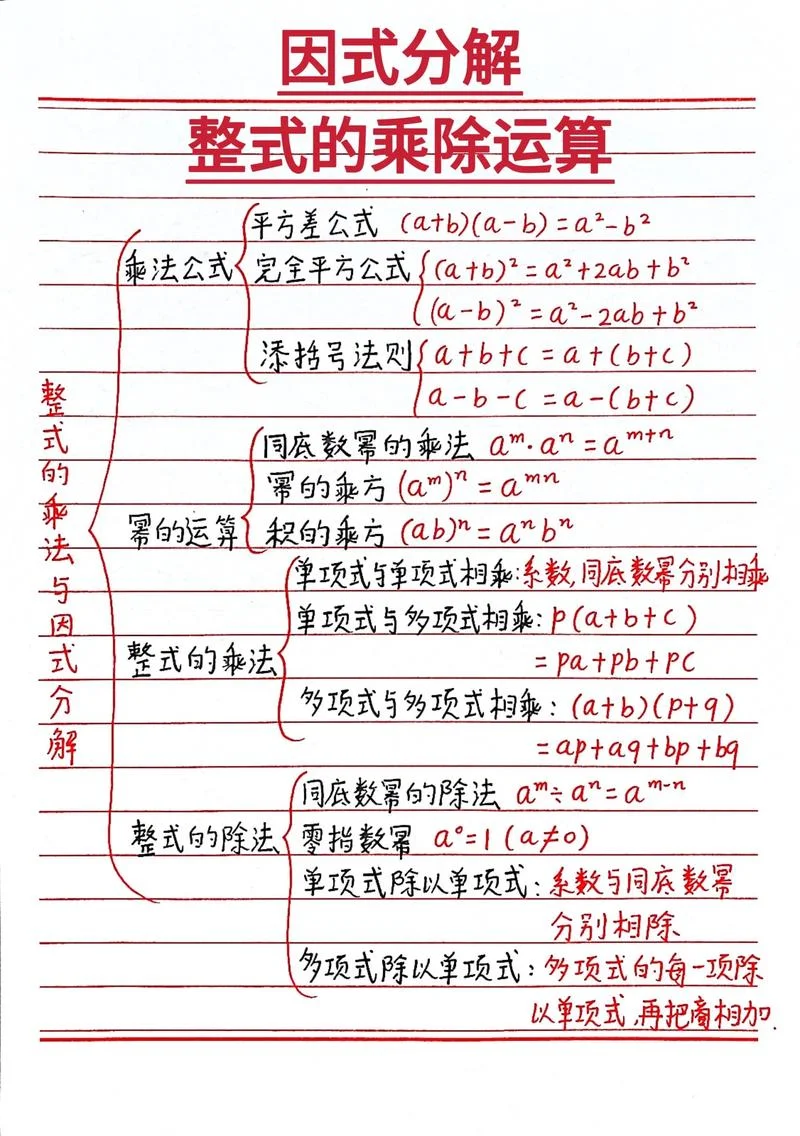 因式分解
整式的乘除运算
整式的乘法与因式分解
乘法公式
平方差公式 (a+b)(a-b)=a²-b²
完全平方公式 (a+b)²=a²+2ab+b²
(a-b)²=a²-2ab+b²
添括号法则 a+b+c=a+(b+c)
a-b-c=a-(b+c)
幂的运算
同底数幂的乘法 aᵐ·aⁿ=aᵐ⁺ⁿ
幂的乘方 (aᵐ)ⁿ=aᵐⁿ
积的乘方 (ab)ⁿ=aⁿbⁿ
整式的乘法
单项式与单项式相乘:系数,同底数幂分别相乘
单项式与多项式相乘:p(a+b+c)
=pa+pb+pc
多项式与多项式相乘:(a+b)(p+q)
=ap+aq+bp+bq
整式的除法
同底数幂的除法 aᵐ÷aⁿ=aᵐ⁻ⁿ
零指数幂 a⁰=1(a≠0)
单项式除以单项式:系数与同底数幂
分别相除
多项式除以单项式:多项式的每一项除
以单项式,再把商相加.